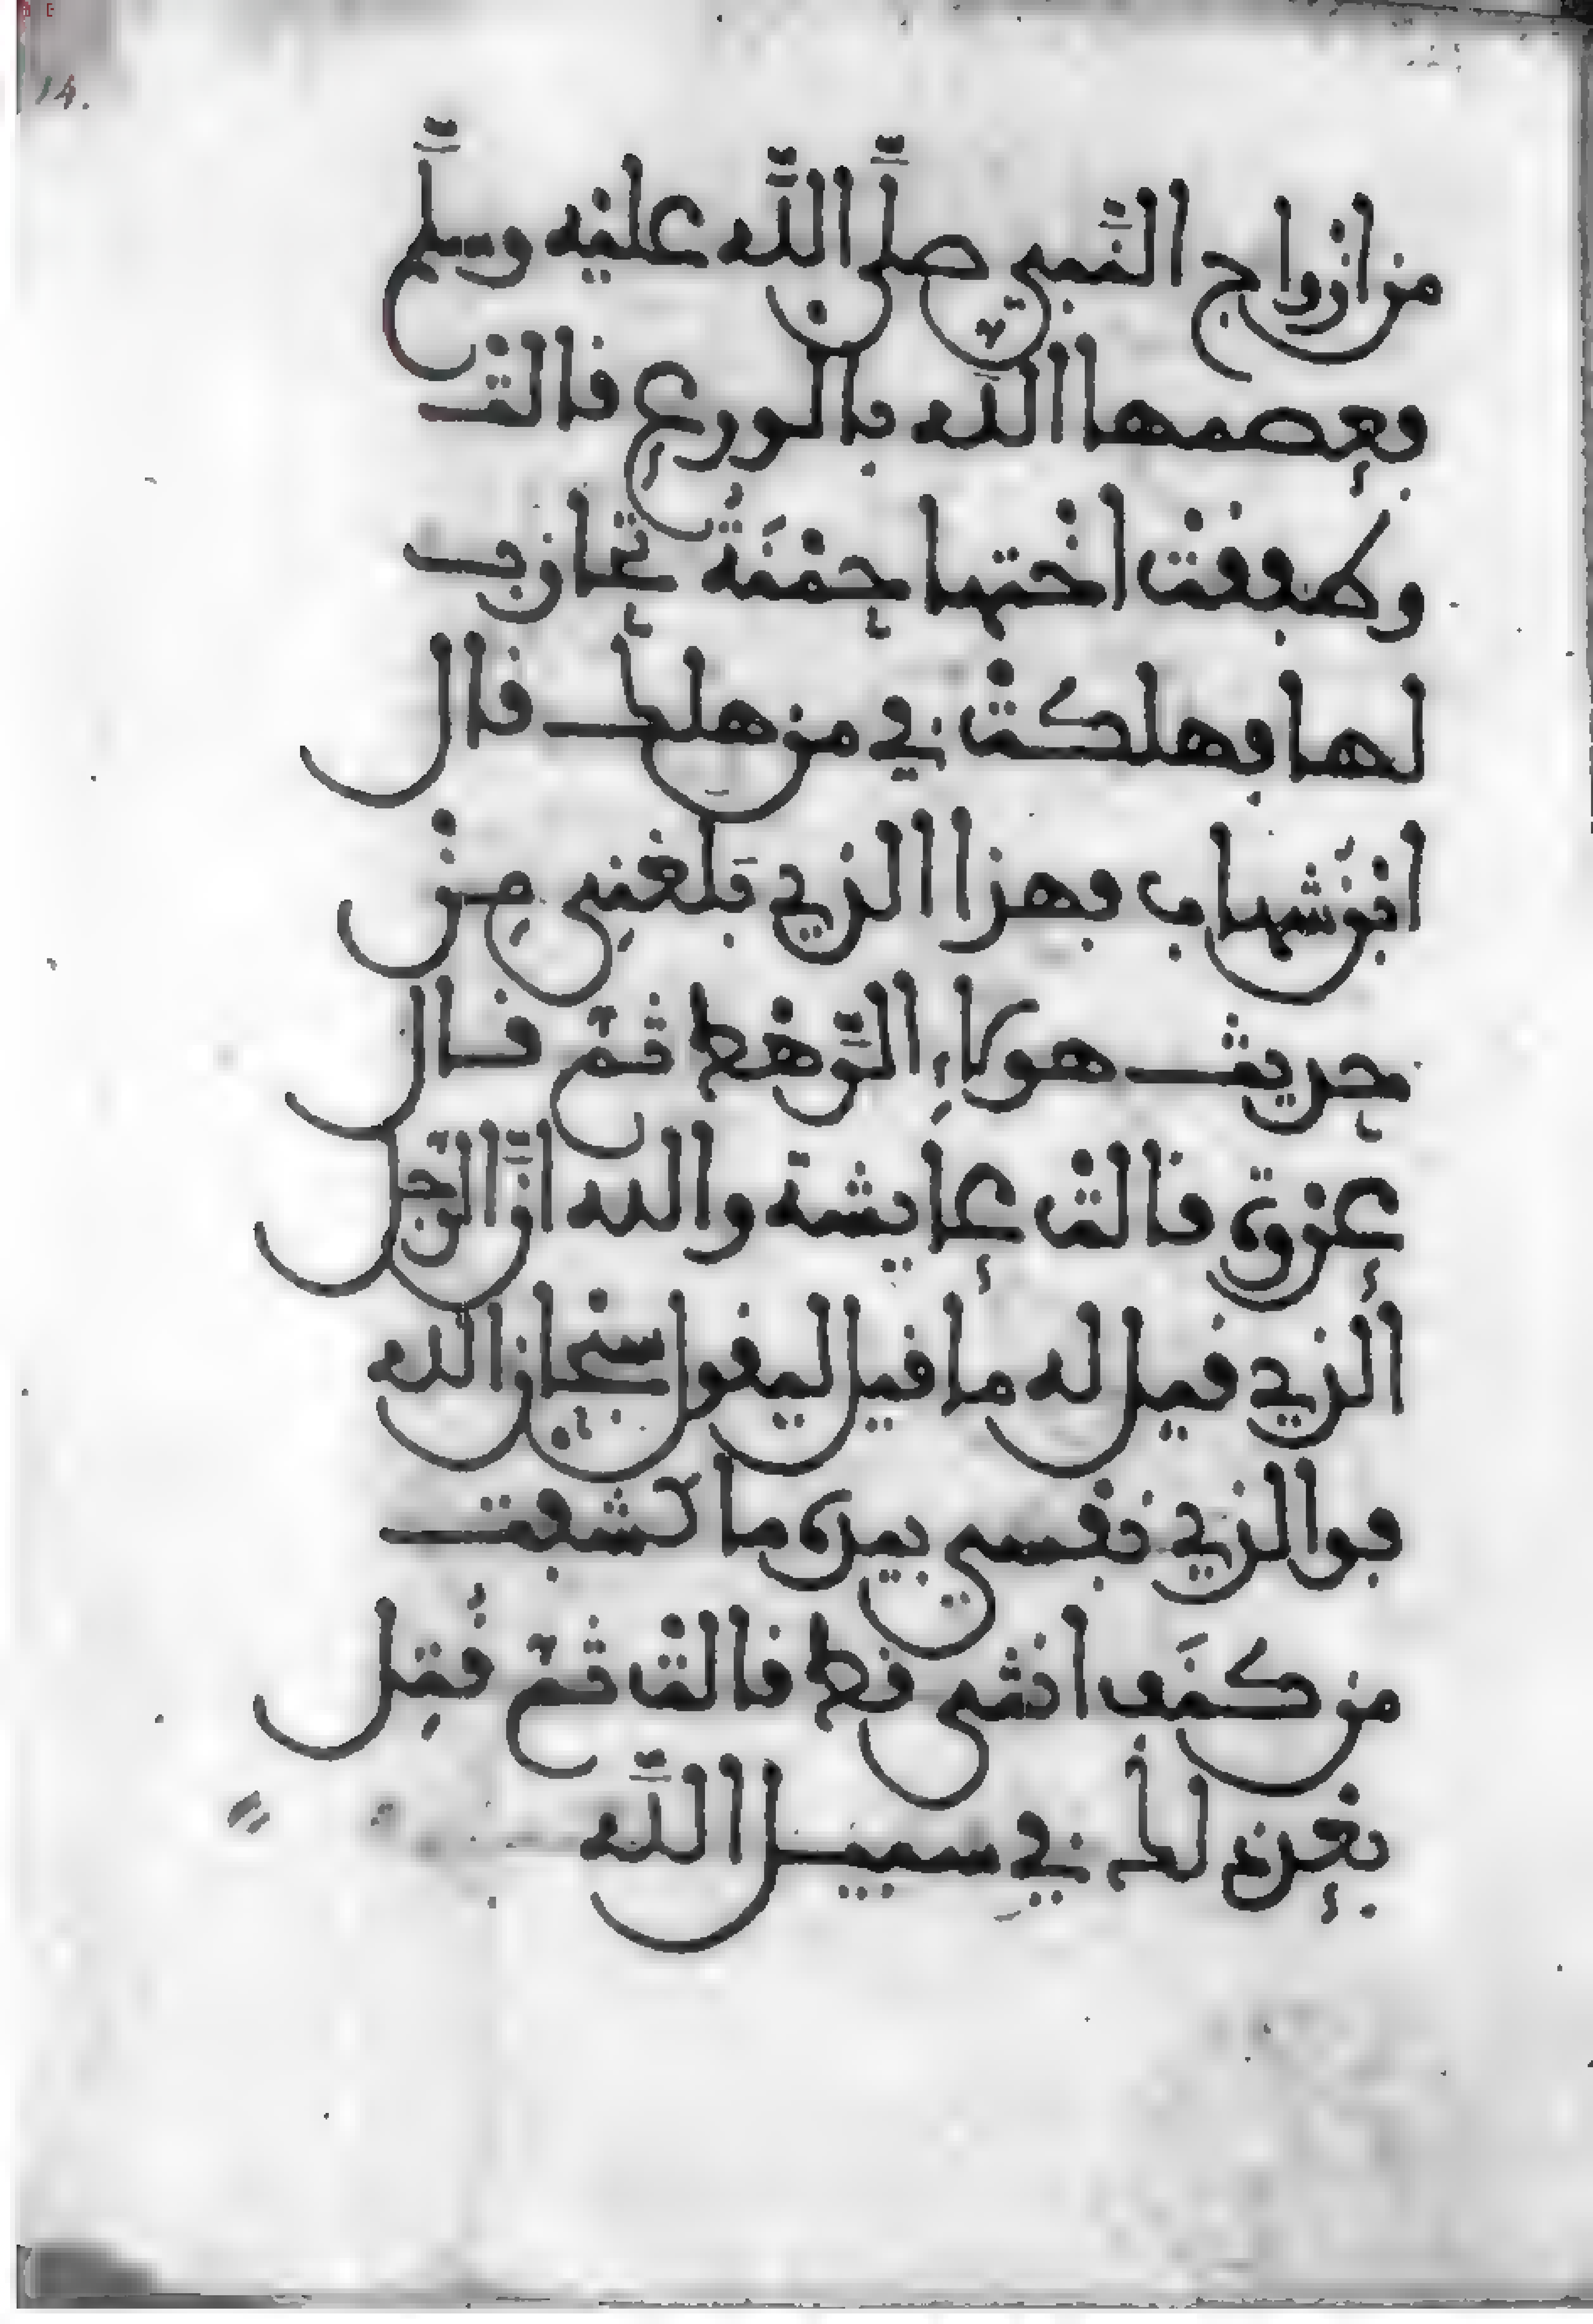 14.
من ازواج النَّبي صلَّى اللَّه عليه وسلَّم
فعصمها اللَّه بالورع قالت
وطفقتْ اختها حمْنَةُ تحارب
لها فهلكتْ في من هلك قال
ابنُ شهاب فهذا الذي بَلغني مِنْ
حديث هولاءِ الرَّهْط ثمّ قال
عروة قالتْ عايشة والله انَّ الرّجل
الذي قيل له ما قيل ليقول سبْحان اللَّه
فوالذي نفسي بيده ما كشفت
من كنَف انثى قط قالتْ ثمّ قُتِل
بعد ذلك في سبيل اللَّه